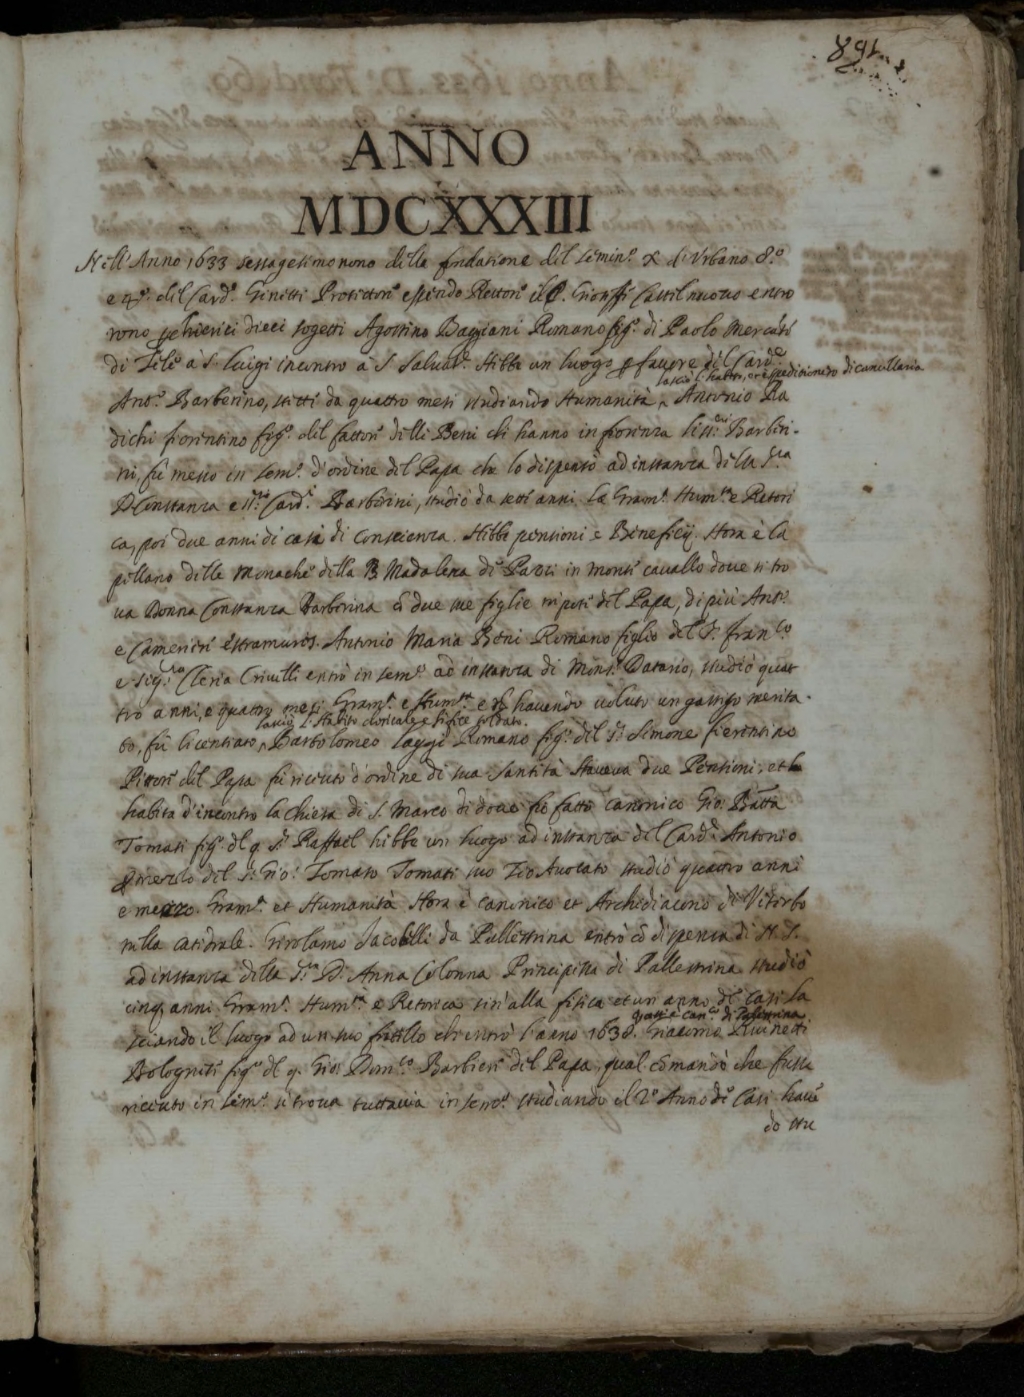 ANNO
MDCXXXIII
Nell'Anno 1633 sessagesimonono delle fondatione del Semin.o X di Urbano 8.o
e 4.o del Card.l Ginetti Protettor.e essendo Rettor.e il P. Gioseffo Castelnuovo entro
rono chierici dieci sogetti Agostino Baggiani Romano fig.o di Paolo Mercāte
di Tele à S. Luigi incontro à S. Salvat.re Hebbe un luogo p favore del Card.l
lasciò l'habito, et è speditionero di cancellaria
Ant.o Barberino, stette da quattro mesi studiando Humanità ^ Antonio Ra
dichi fiorentino fig.o del fattor.e delli Beni che hanno in fiorenza li SS.ri Barberi-
ni, fù messo in sem.o d'ordine del Papa che lo dispensò ad instanza della S.ra
D. Constanza e SS.ri Card.li Barberini, studiò da sette anni la Gram.ca Hum.tà e Retori
ca, poi due anni di casi di conscienza. Hebbe pensioni e Beneficij. Hora è Ca
pellano delle Monache della B. Madalena de Pazzi in monte cavallo dove si tro
va Donna Constanza Barberina cō due sue figlie nipoti del Papa, di più Aiut.e
e Camerier.e extramuros. Antonio Maria Beni Romano figlio del S.r Fran.co
e Sig.ra Cleria Crivelli entrò in sem.o ad instanza di Mons.r Datario, studiò quat
tro anni, e quattro mesi Gram.ca e Hum.tà e nō havendo voluto un gastigo merita-
lasciò l'Habito clericale e si fece soldato.
to, fù licentiato ^ Bartolomeo Laggi Romano fig.o del S.r Simone fiorentino
Pittor.e del Papa fù ricevuto d'ordine di sua Santità Haveva due Pensioni, et
habita d'incontro la Chiesa di S. Marco di dove fù fatto canonico Gio: Batta
Tomati fig.o del q. S.r Raffael hebbe un luogo ad instanza del Card.l Antonio
p mezzo del S.r Gio: Tomaso Tomati suo Zio Avocato studiò quattro anni
e mezzo Gram.ca et Humanità Hora è canonico et Archidiacono di Viterbo
nella catedrale. Girolamo Jacobelli da Pallestrina entrò cō dispensa di N. S.
ad instanza della S.ra D. Anna Colonna Principessa di Pallestrina studiò
cinq; anni Gram.ca Hum.tà e Retorica sin'alla fisica et un anno de Casi la
Hoggi è Can.co di Palestrina
sciando il luogo ad un suo fratello ch'entrò l'anno 1638. Giacomo Ruinetti
Bolognese fig.o del q. Gio: Dom.co Barbier.e del Papa, qual comandò che fusse
ricevuto in sem.o si trova tuttavia in sem.o studiando il 2.o Anno de Casi havē
do stu